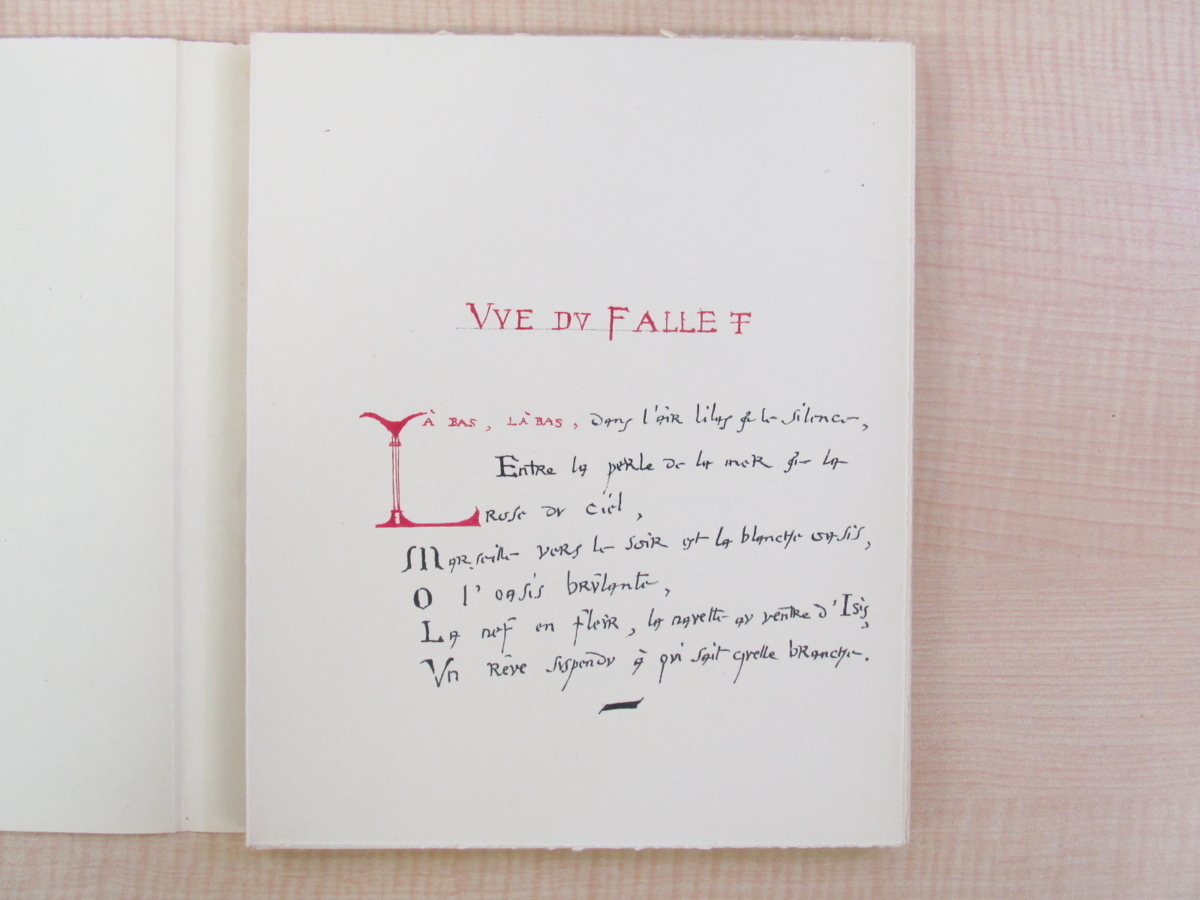 VVE DV FALLET
LÀ BAS, LÀ BAS, dans l'air lilas & le silence,
Entre la perle de la mer & la
Rose dv ciel,
Marseille vers le soir est la blanche oasis,
O l'oasis brvlante,
La nef en flevr, la navette av ventre d'Isis,
Vn Rêve svspendv à qvi sait qvelle branche.